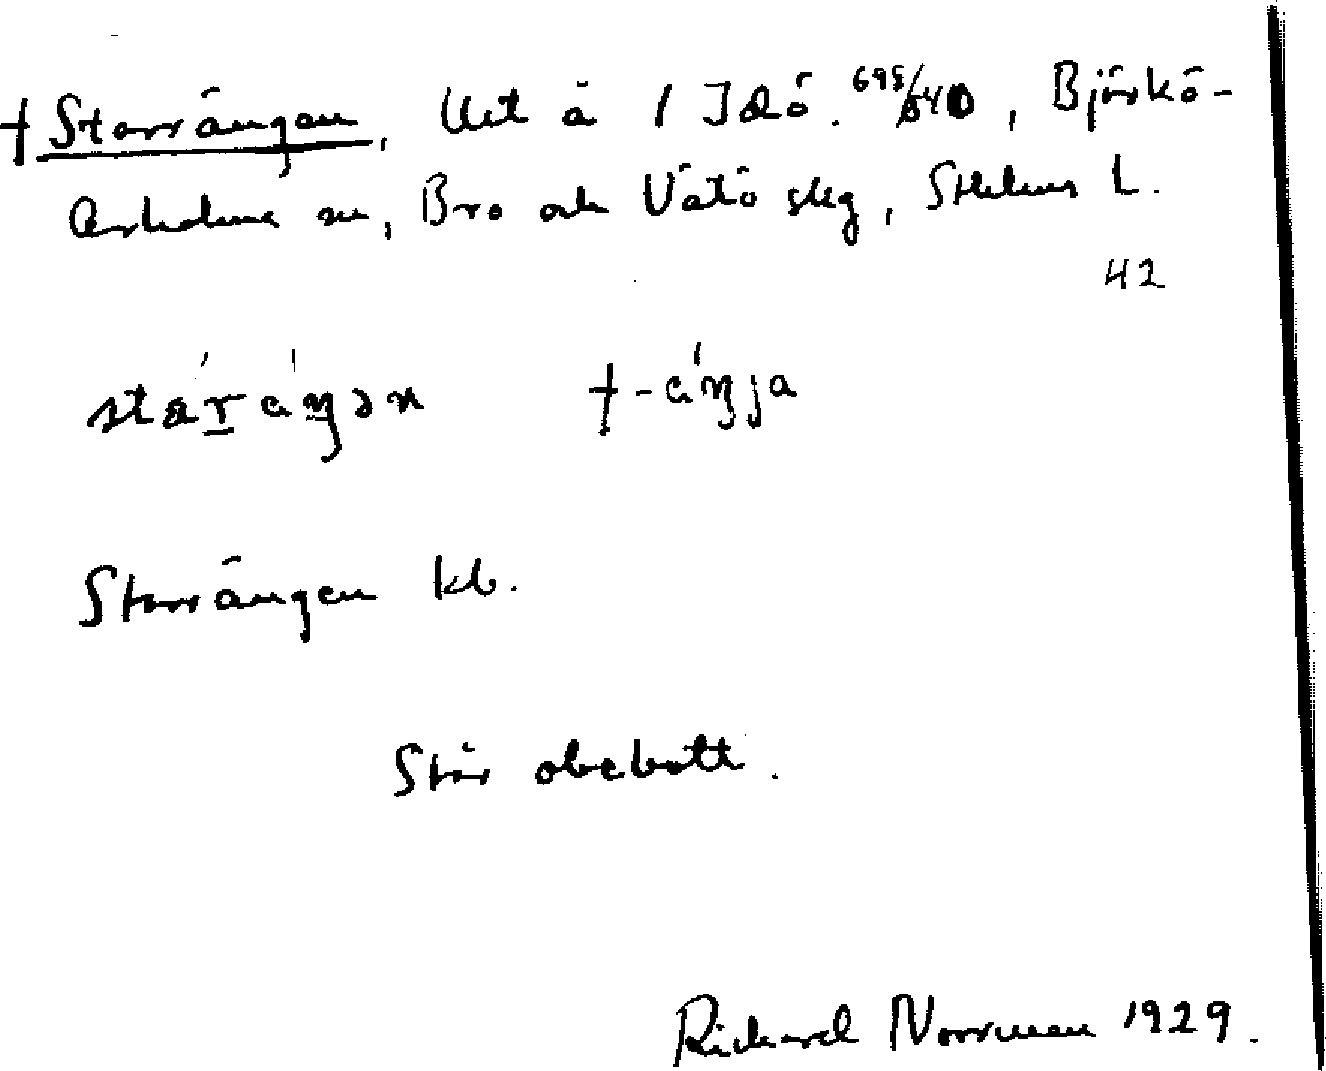 † Storrängen, Utt å 1 Idö. 695/540, Björkö-
Arholma sn, Bro och Vätö skg, Sthlms L.
42
stárɛ́ŋən †-ɛ́ŋja
Storrängen kb.
Står obebott.
Richard Norrman 1929.